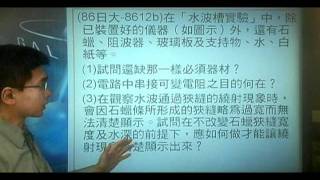 (86日大-8612b)在「水波槽實驗」中，除
已裝置好的儀器（如圖示）外，還有石
蠟、阻波器、玻璃板及支持物、水、白
紙等。
(1)試問還缺那一樣必須器材？
(2)電路中串接可變電阻之目的何在？
(3)在觀察水波通過狹縫的繞射現象時，
會因石蠟條所形成的狹縫略為過寬而無
法清楚顯示。試問在不改變石蠟狹縫寬
度及水深的前提下，應如何做才能讓繞
射現 楚顯示出來？